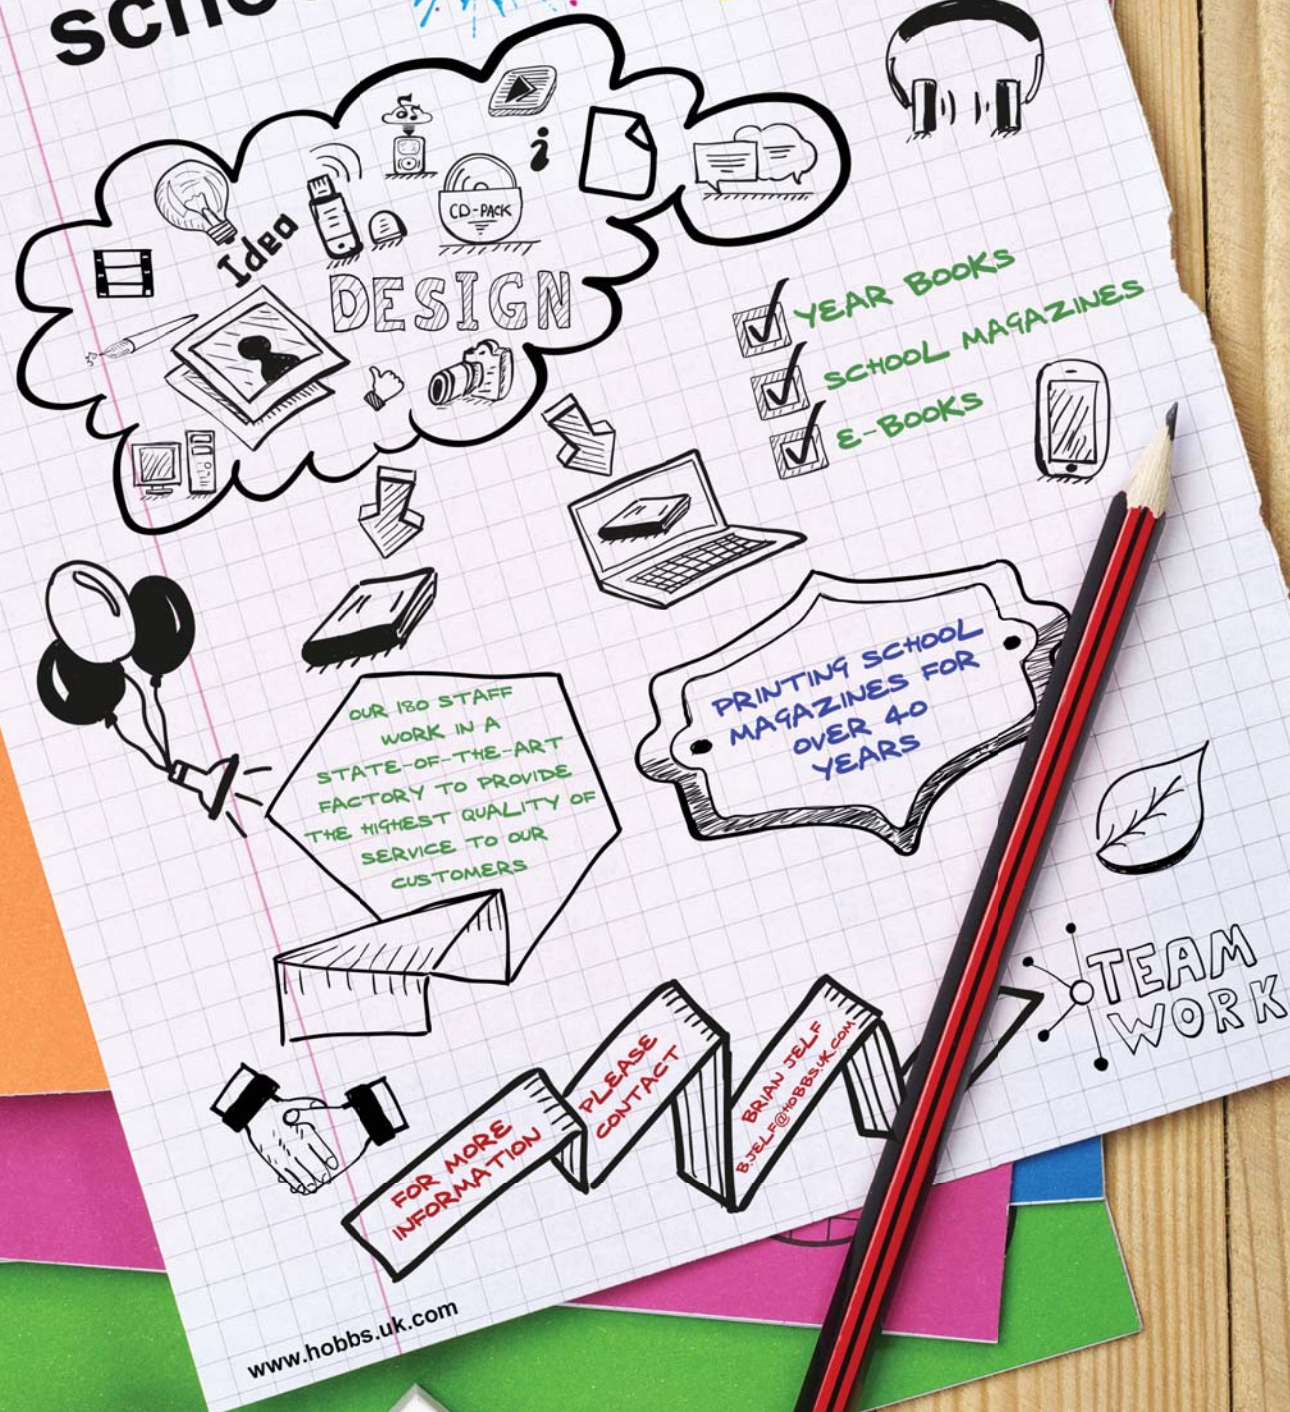 i
CD-PACK
Idea
DESIGN
YEAR BOOKS
SCHOOL MAGAZINES
E-BOOKS
OUR 180 STAFF
WORK IN A
STATE-OF-THE-ART
FACTORY TO PROVIDE
THE HIGHEST QUALITY OF
SERVICE TO OUR
CUSTOMERS
PRINTING SCHOOL
MAGAZINES FOR
OVER 40
YEARS
TEAM
WORK
FOR MORE
INFORMATION
PLEASE
CONTACT
BRIAN JELF
B.JELF@HOBBS.UK.COM
www.hobbs.uk.com